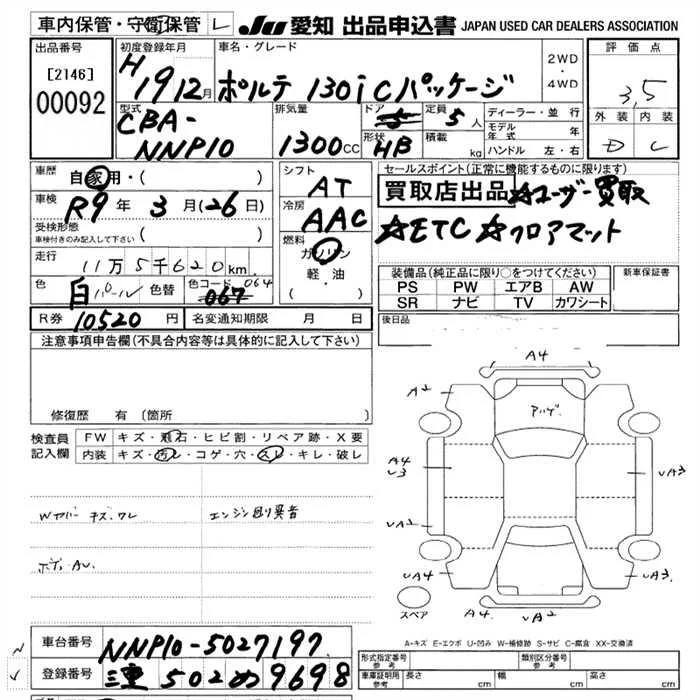 車内保管・守衛保管 レ
JU 愛知 出品申込書 JAPAN USED CAR DEALERS ASSOCIATION
出品番号
[2146]
00092
初度登録年月
H19 12月
車名・グレード
ポルテ 130iCパッケージ
2WD
・
4WD
評価点
3,5
外装 内装
D C
型式
CBA-
NNP10
排気量
1300CC
ドア 5
形状 HB
定員 5人
積載 kg
ディーラー・並行
モデル年式 年
ハンドル 左・右
車歴 自家用・( )
車検 R9年 3月(26日)
受検形態
車検付きのみ記入して下さい ( )
走行 11万5千620km
色 白パール 色替
色コード 064
067
シフト
AT
冷房
AAC
燃料
ガソリン
軽・油
( ・ )
R券 10520円 名変通知期限 月 日
セールスポイント(正常に機能するものに限ります)
買取店出品 ☆ユーザー買取
☆ETC ☆フロアマット
装備品(純正品に限り○をつけてください)
PS PW エアB AW
SR ナビ TV カワシート
新車保証書
後日品
注意事項申告欄(不具合内容等は具体的に記入して下さい)
修復歴 有(箇所 )
検査員
記入欄
FW キズ・飛石・ヒビ割・リペア跡・X要
内装 キズ・汚レ・コゲ・穴・スレ・キレ・破レ
Wカバー キズ、ワレ
エンジン廻り異音
ボディAU
A4
A2
アッゲ
A4
U3
A3
UA2
UA3
UA4
UA3
A4 UA2
スペア
A-キズ E-エクボ U-凹み W-補修跡 S-サビ C-腐食 XX-交換済
車台番号 NNP10-5027197
登録番号 三重 502 め 9698
形式指定番号
参考
類別区分番号
参考
車庫証明用
参考
長さ cm 幅 cm 高さ cm